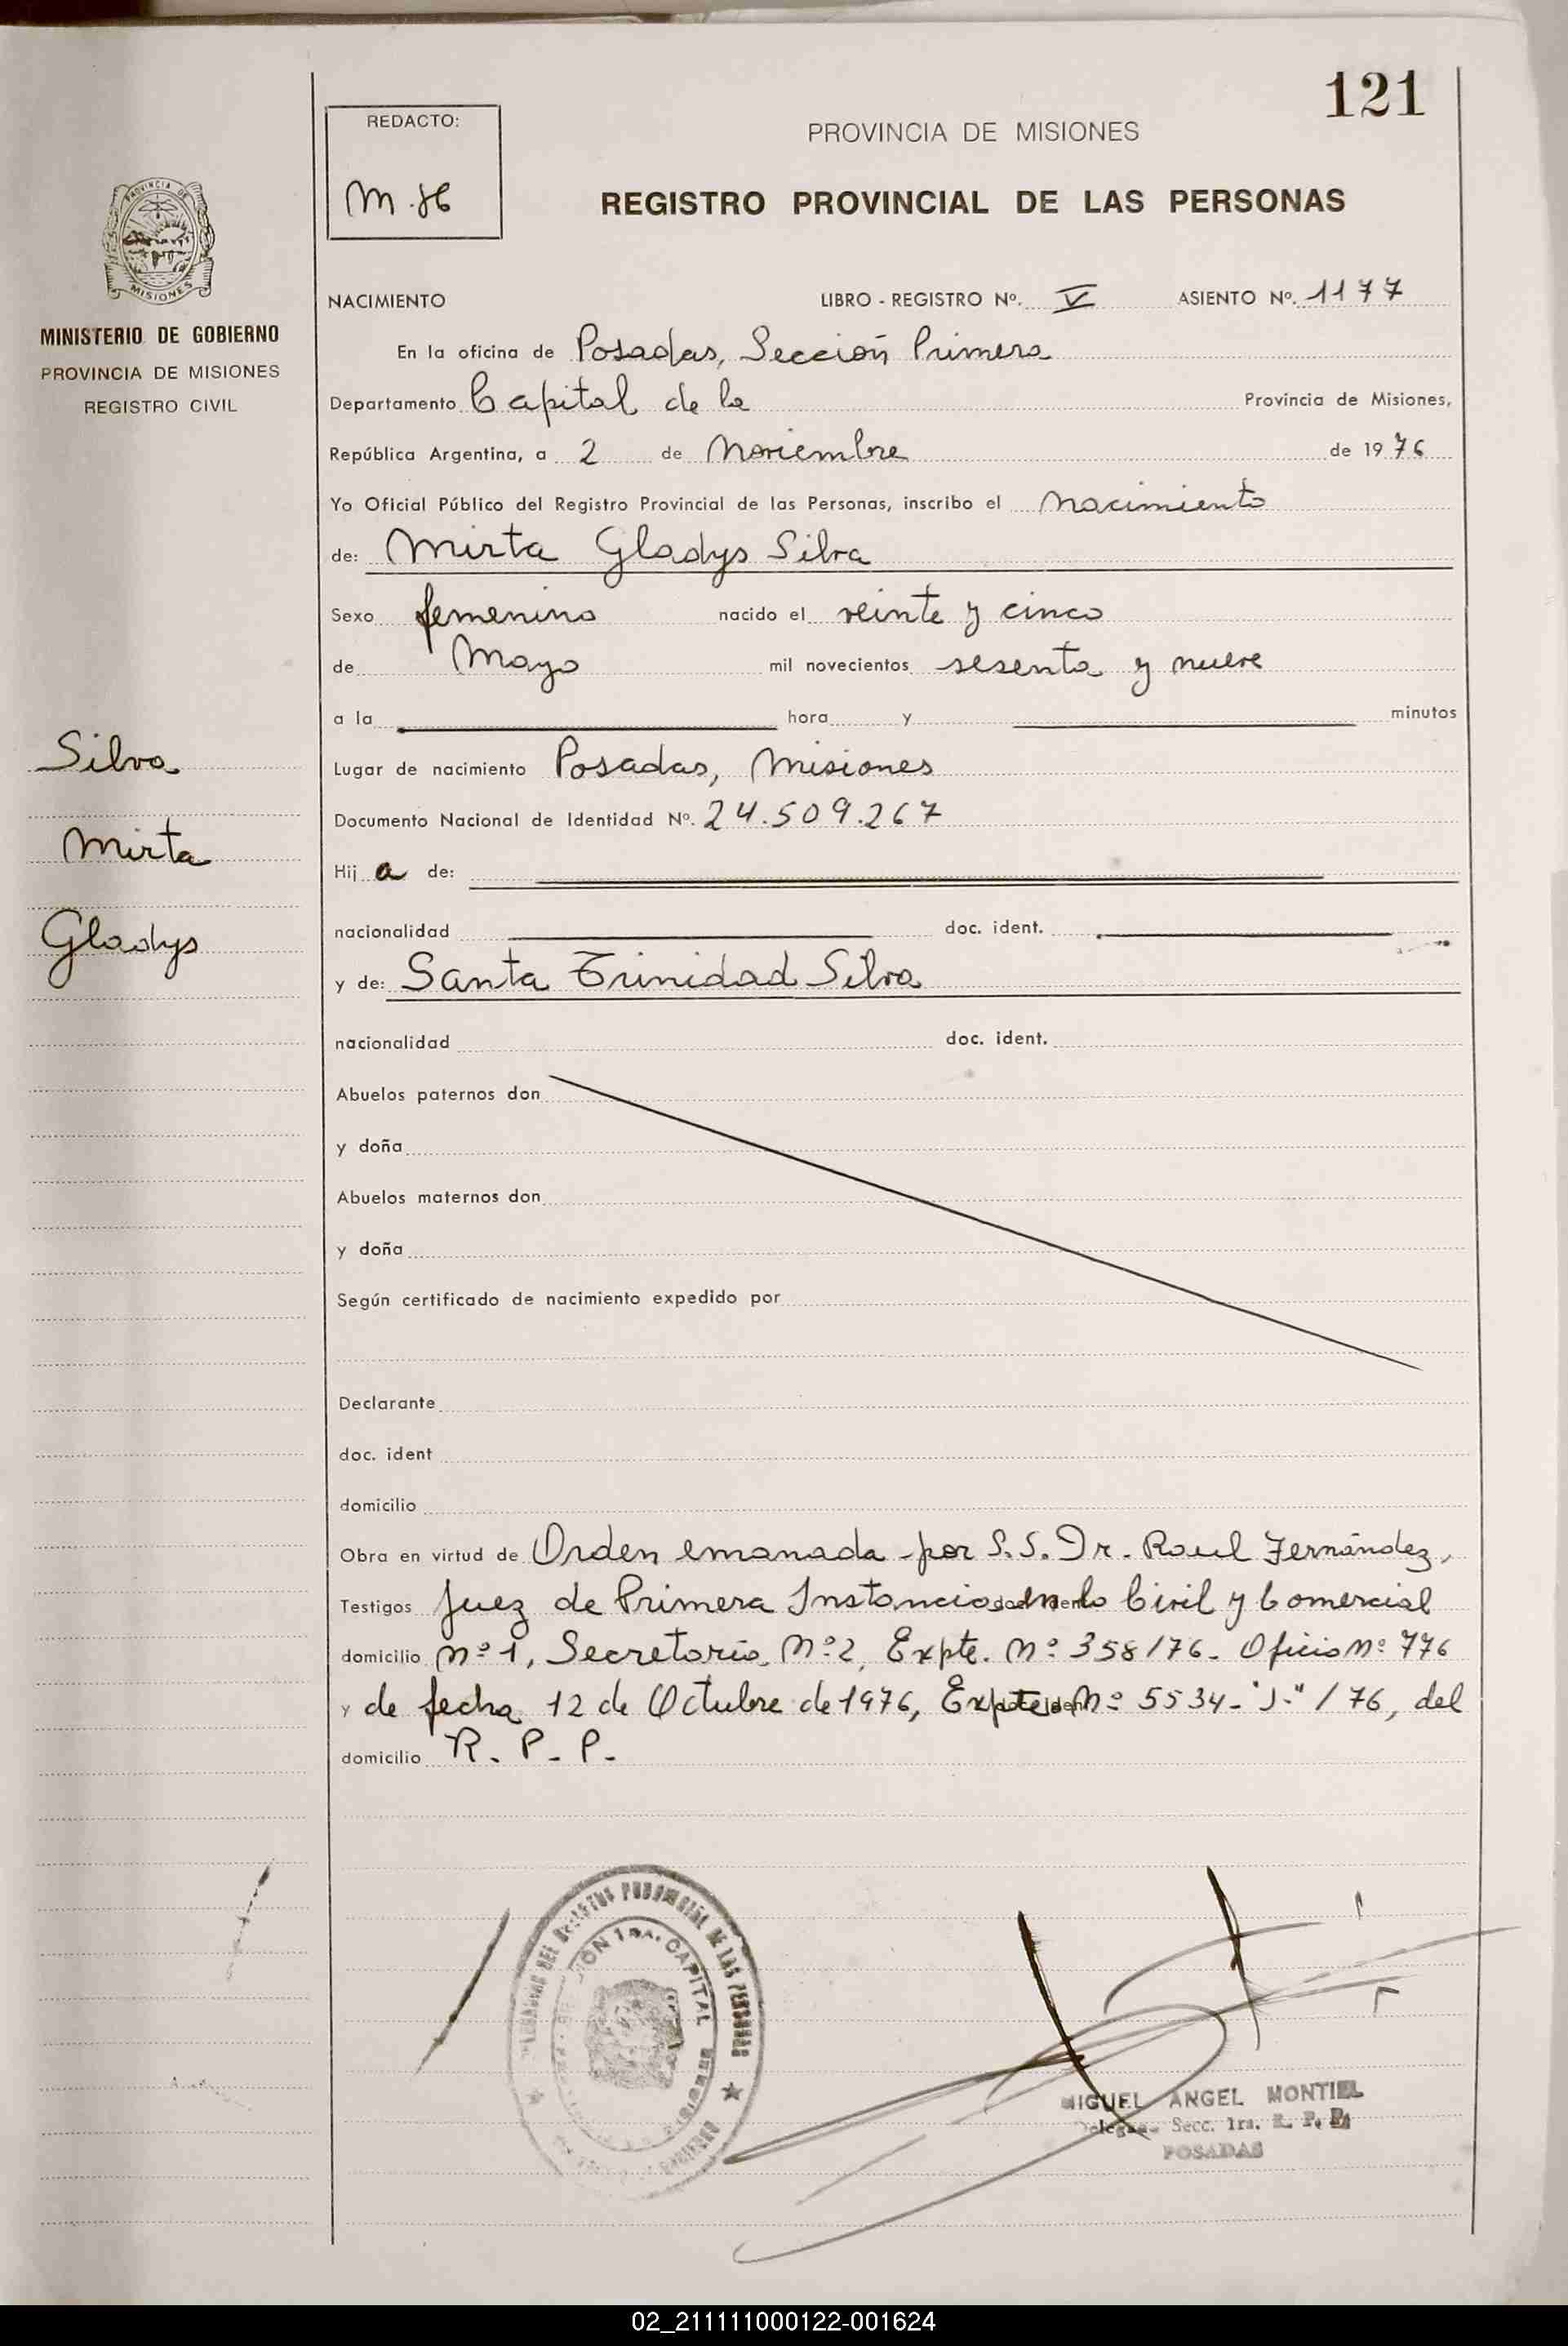 121
REDACTO:
M.H
PROVINCIA DE MISIONES
REGISTRO PROVINCIAL DE LAS PERSONAS
PROVINCIA DE
MISIONES
MINISTERIO DE GOBIERNO
PROVINCIA DE MISIONES
REGISTRO CIVIL
NACIMIENTO LIBRO - REGISTRO Nº. V ASIENTO Nº. 1177
En la oficina de Posadas, Sección Primera
Departamento Capital de la Provincia de Misiones,
República Argentina, a 2 de Noviembre de 1976
Yo Oficial Público del Registro Provincial de las Personas, inscribo el Nacimiento
de: Mirta Gladys Silva
Sexo femenino nacido el veinte y cinco
de Mayo mil novecientos sesenta y nueve
a la hora y minutos
Silva
Mirta
Gladys
Lugar de nacimiento Posadas, Misiones
Documento Nacional de Identidad Nº. 24.509.267
Hij a de:
nacionalidad doc. ident.
y de: Santa Trinidad Silva
nacionalidad doc. ident.
Abuelos paternos don
y doña
Abuelos maternos don
y doña
Según certificado de nacimiento expedido por
Declarante
doc. ident
domicilio
Obra en virtud de Orden emanada por S.S. Dr. Raul Fernández,
Testigos Juez de Primera Instancia en lo Civil y Comercial
domicilio Nº 1, Secretaría Nº 2, Expte. Nº 358/76. Oficio Nº 776
y de fecha 12 de Octubre de 1976, Expte Nº 5534-"J-"/76, del
domicilio R. P. P.
DEL REGISTRO PROVINCIAL DE LAS PERSONAS
SECCION 1RA. CAPITAL
MIGUEL ANGEL MONTIEL
Delegado Secc. 1ra. R. P. P.
POSADAS
02_211111000122-001624